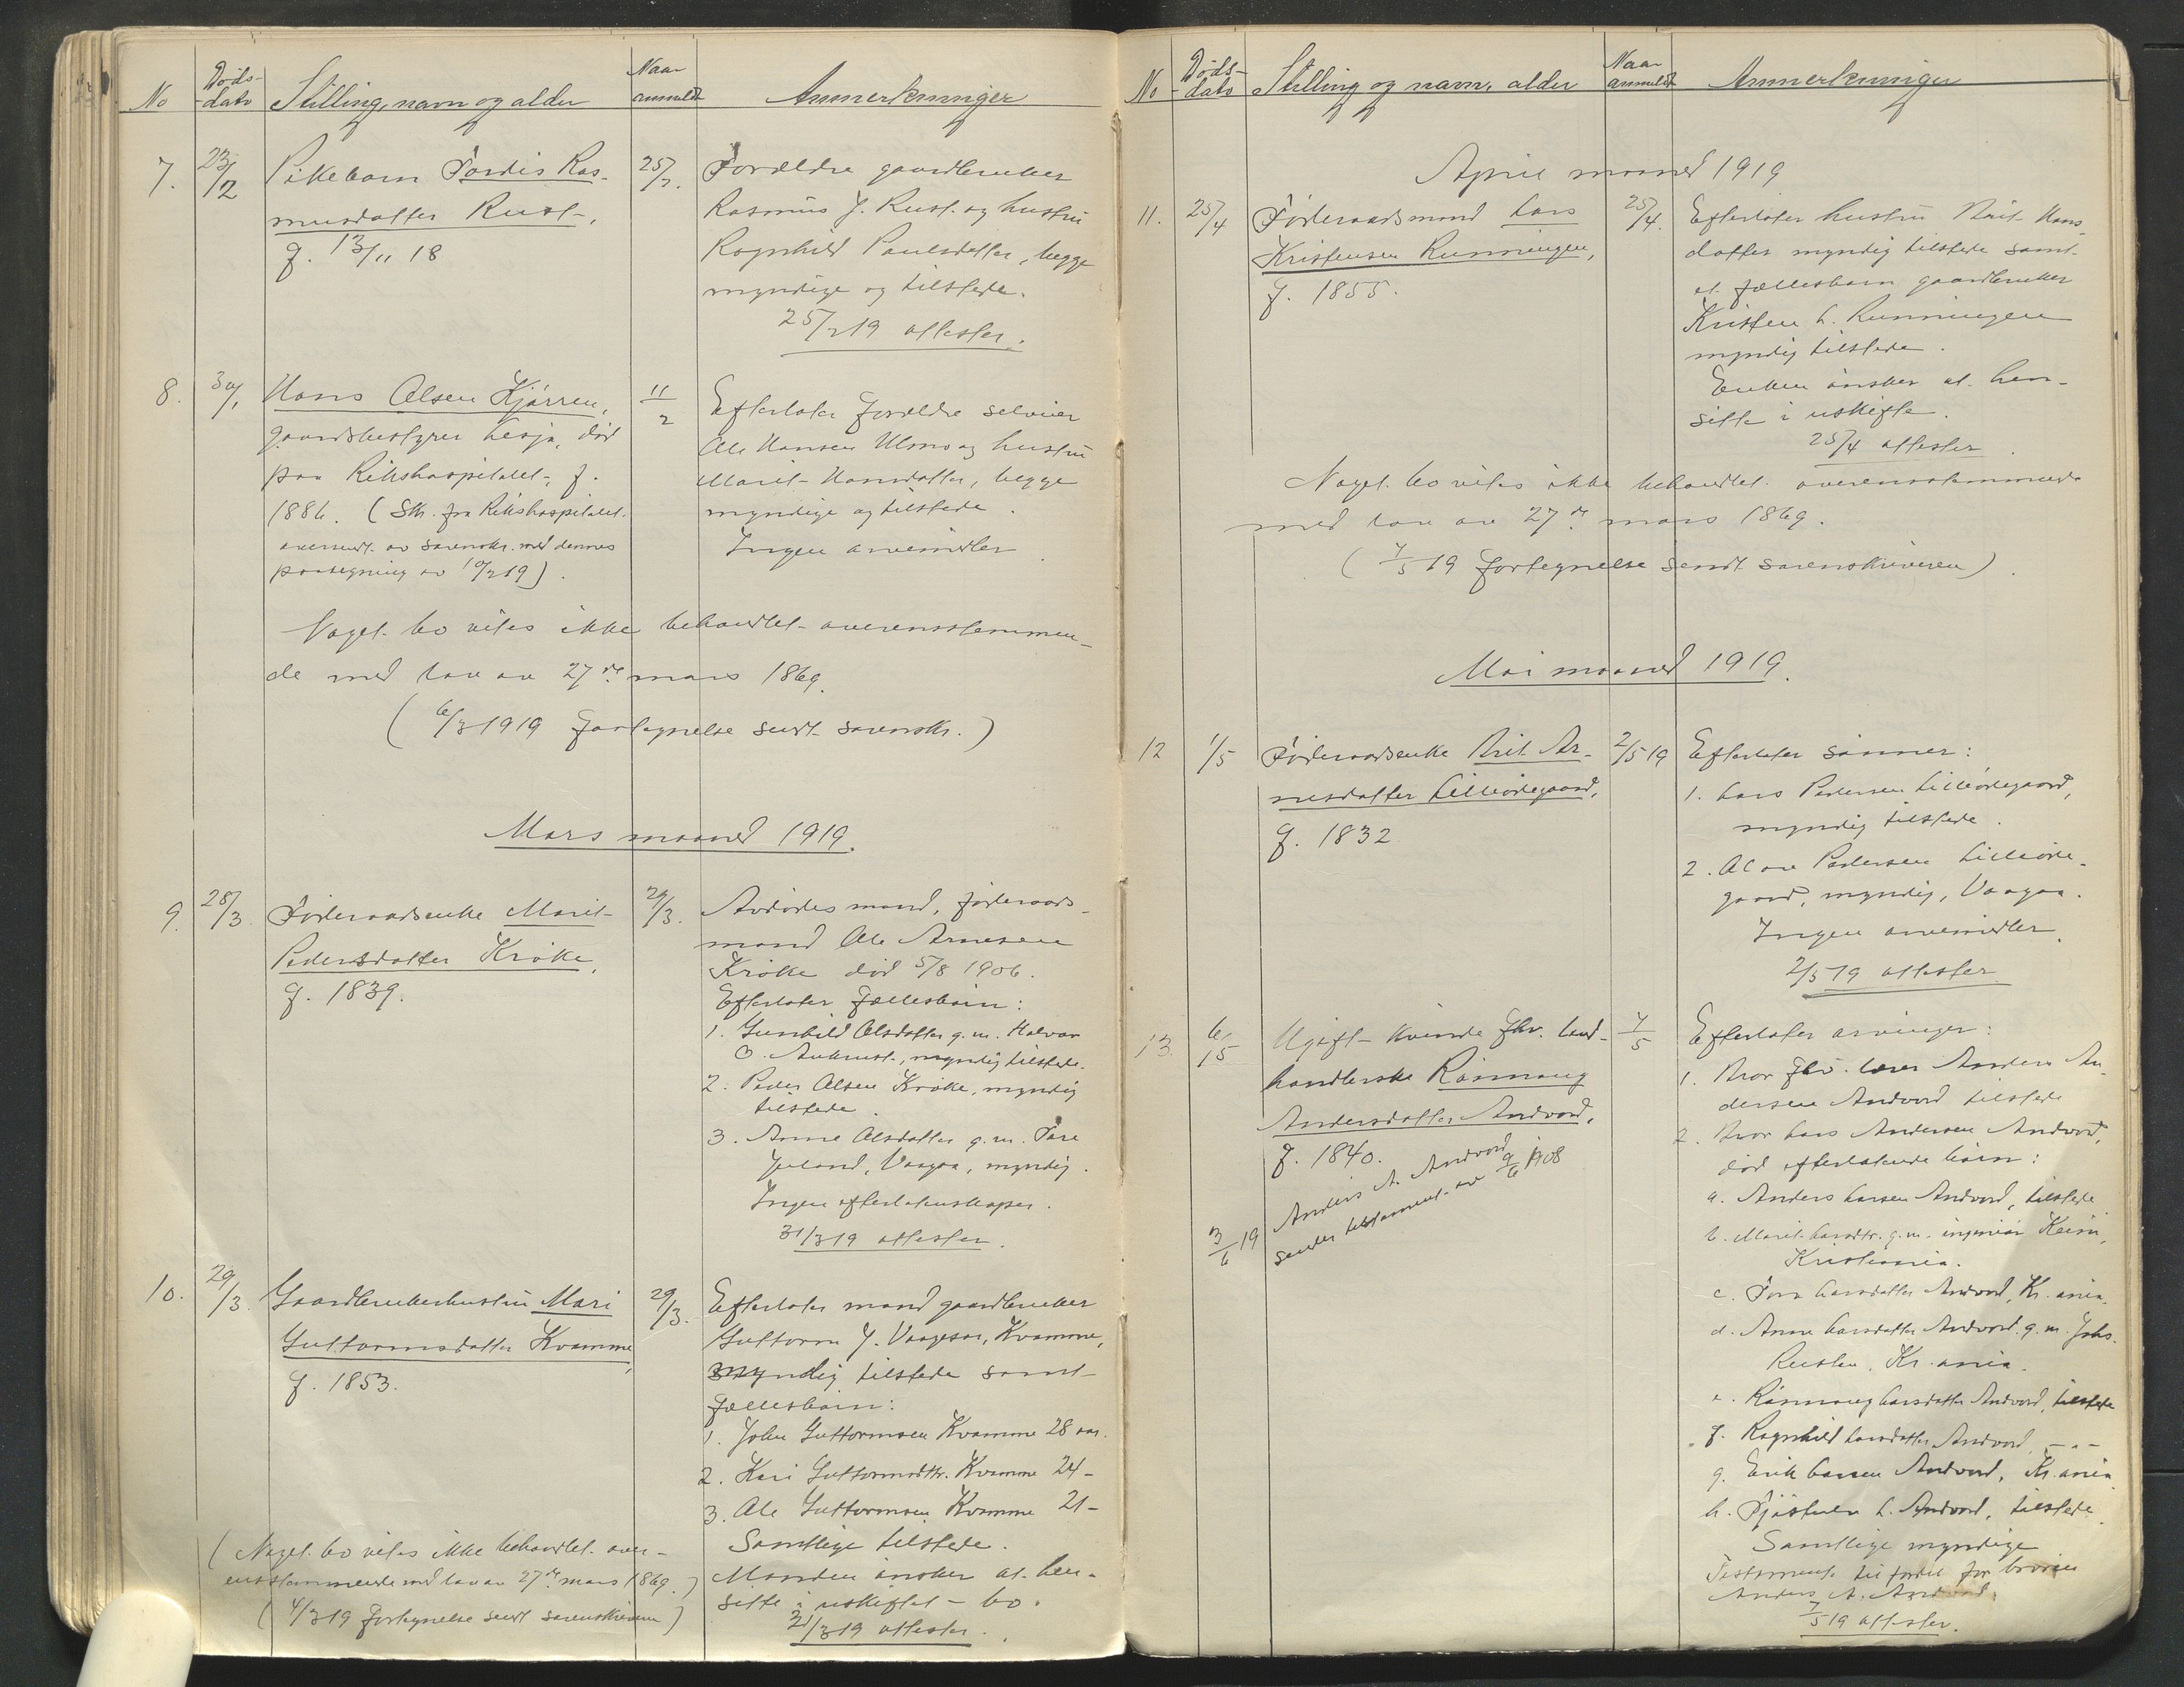 No Døds-dato Stilling, navn og alder Naar anmeldt Anmerkninger
7. 23/2 Pikebarn Tordis Ras-
musdatter Rust,
f. 13/11 18
25/2. Forældre gaardbruker
Rasmus J. Rust og hustru
Ragnhild Paulsdatter, begge
myndige og tilstede.
25/2 19 attester.
8. 30/1 Hans Olsen Kjørren,
gaardsbestyrer Lesja, død
paa Rikshospitalet, f.
1886. (Sk. fra Rikshospitalet
oversendt av sorenskr. med dennes
paategning av 10/2 19).
11/2 Efterlater forældre selveier
Ole Hansen Ulmo og hustru
Marit Hansdatter, begge
myndige og tilstede.
Ingen arvemidler.
Noget bo vites ikke behandlet overensstemmen-
de med lov av 27de mars 1869.
(6/3 1919 fortegnelse sendt sorenskr.)
Mars maaned 1919.
9. 28/3 Føderaadsenke Marit
Pedersdatter Krøke,
f. 1839.
29/3. Avdødes mand, føderaads-
mand Ole Arnesen
Krøke død 5/8 1906.
Efterlater fællesbørn:
1. Gunhild Olsdatter g. m. Halvor
O. Aukrust, myndig tilstede.
2. Peder Olsen Krøke, myndig
tilstede.
3. Anne Olsdatter g. m. Tore
Vaagaa, myndig.
Ingen efterlatenskaper.
31/3 19 attester.
10. 29/3. Gaardbrukerhustru Mari
Guttormsdatter Kvamme,
f. 1853.
29/3. Efterlater mand gaardbruker
Guttorm J. Vaagesar, Kvamme,
myndig tilstede samt
fællesbørn:
1. John Guttormsen Kvamme 28 aar.
2. Kari Guttormsdtr. Kvamme 24 -
3. Ole Guttormsen Kvamme 21 -
Samtlige tilstede.
Manden ønsker at hen-
sitte i uskiftet bo.
31/3 19 attester.
(Noget bo vites ikke behandlet over-
ensstemmende med lov av 27de mars 1869.)
(4/3 19 fortegnelse sendt sorenskriveren)
No Døds-dato Stilling og navn, alder Naar anmeldt Anmerkninger
April maaned 1919
11. 25/4 Føderaadsmand Lars
Kristensen Runningen,
f. 1855.
25/4. Efterlater hustru Brit Hans-
datter myndig tilstede samt
et fællesbarn gaardbruker
Kristen L. Runningen
myndig tilstede.
Enken ønsker at hen-
sitte i uskifte.
25/4 attester.
Noget bo vites ikke behandlet overensstemmende
med lov av 27de mars 1869.
(7/5 19 fortegnelse sendt sorenskriveren).
Mai maaned 1919.
12 1/5 Føderaadsenke Brit Ar-
nesdatter Lilleødegaard,
f. 1832
2/5 19 Efterlater sønner:
1. Lars Pedersen Lilleødegaard,
myndig tilstede.
2. Pedersen Lilleøde-
gaard, myndig, Vaagaa.
Ingen arvemidler.
2/5 19 attester
13. 6/5 Ugift kvinde fhv. land-
handlerske Rønnaug
Andersdatter Andvord,
f. 1840.
3/6 19 Anders A. Andvord
sender testament av 9/6 1908
7/5 Efterlater arvinger:
1. Bror fhv. lærer Anders An-
dersen Andvord tilstede
2. Bror Lars Andersen Andvord,
død efterlatende børn:
a. Anders Larsen Andvord, tilstede
b. Marit Larsdtr. g. m. ingeniør
Kristiania.
c. Tora Larsdatter Andvord, Kr.ania.
d. Anne Larsdatter Andvord g. m. Johs.
Rusten, Kr.ania.
e. Rønnaug Larsdatter Andvord, tilstede
f. Ragnhild Larsdatter Andvord - " -
g. Erik Larsen Andvord, Kr.ania
h. Tjøstulv L. Andvord, tilstede.
Samtlige myndige
Testamente til fordel for broren
Anders A. Andvord.
7/5 19 attester.